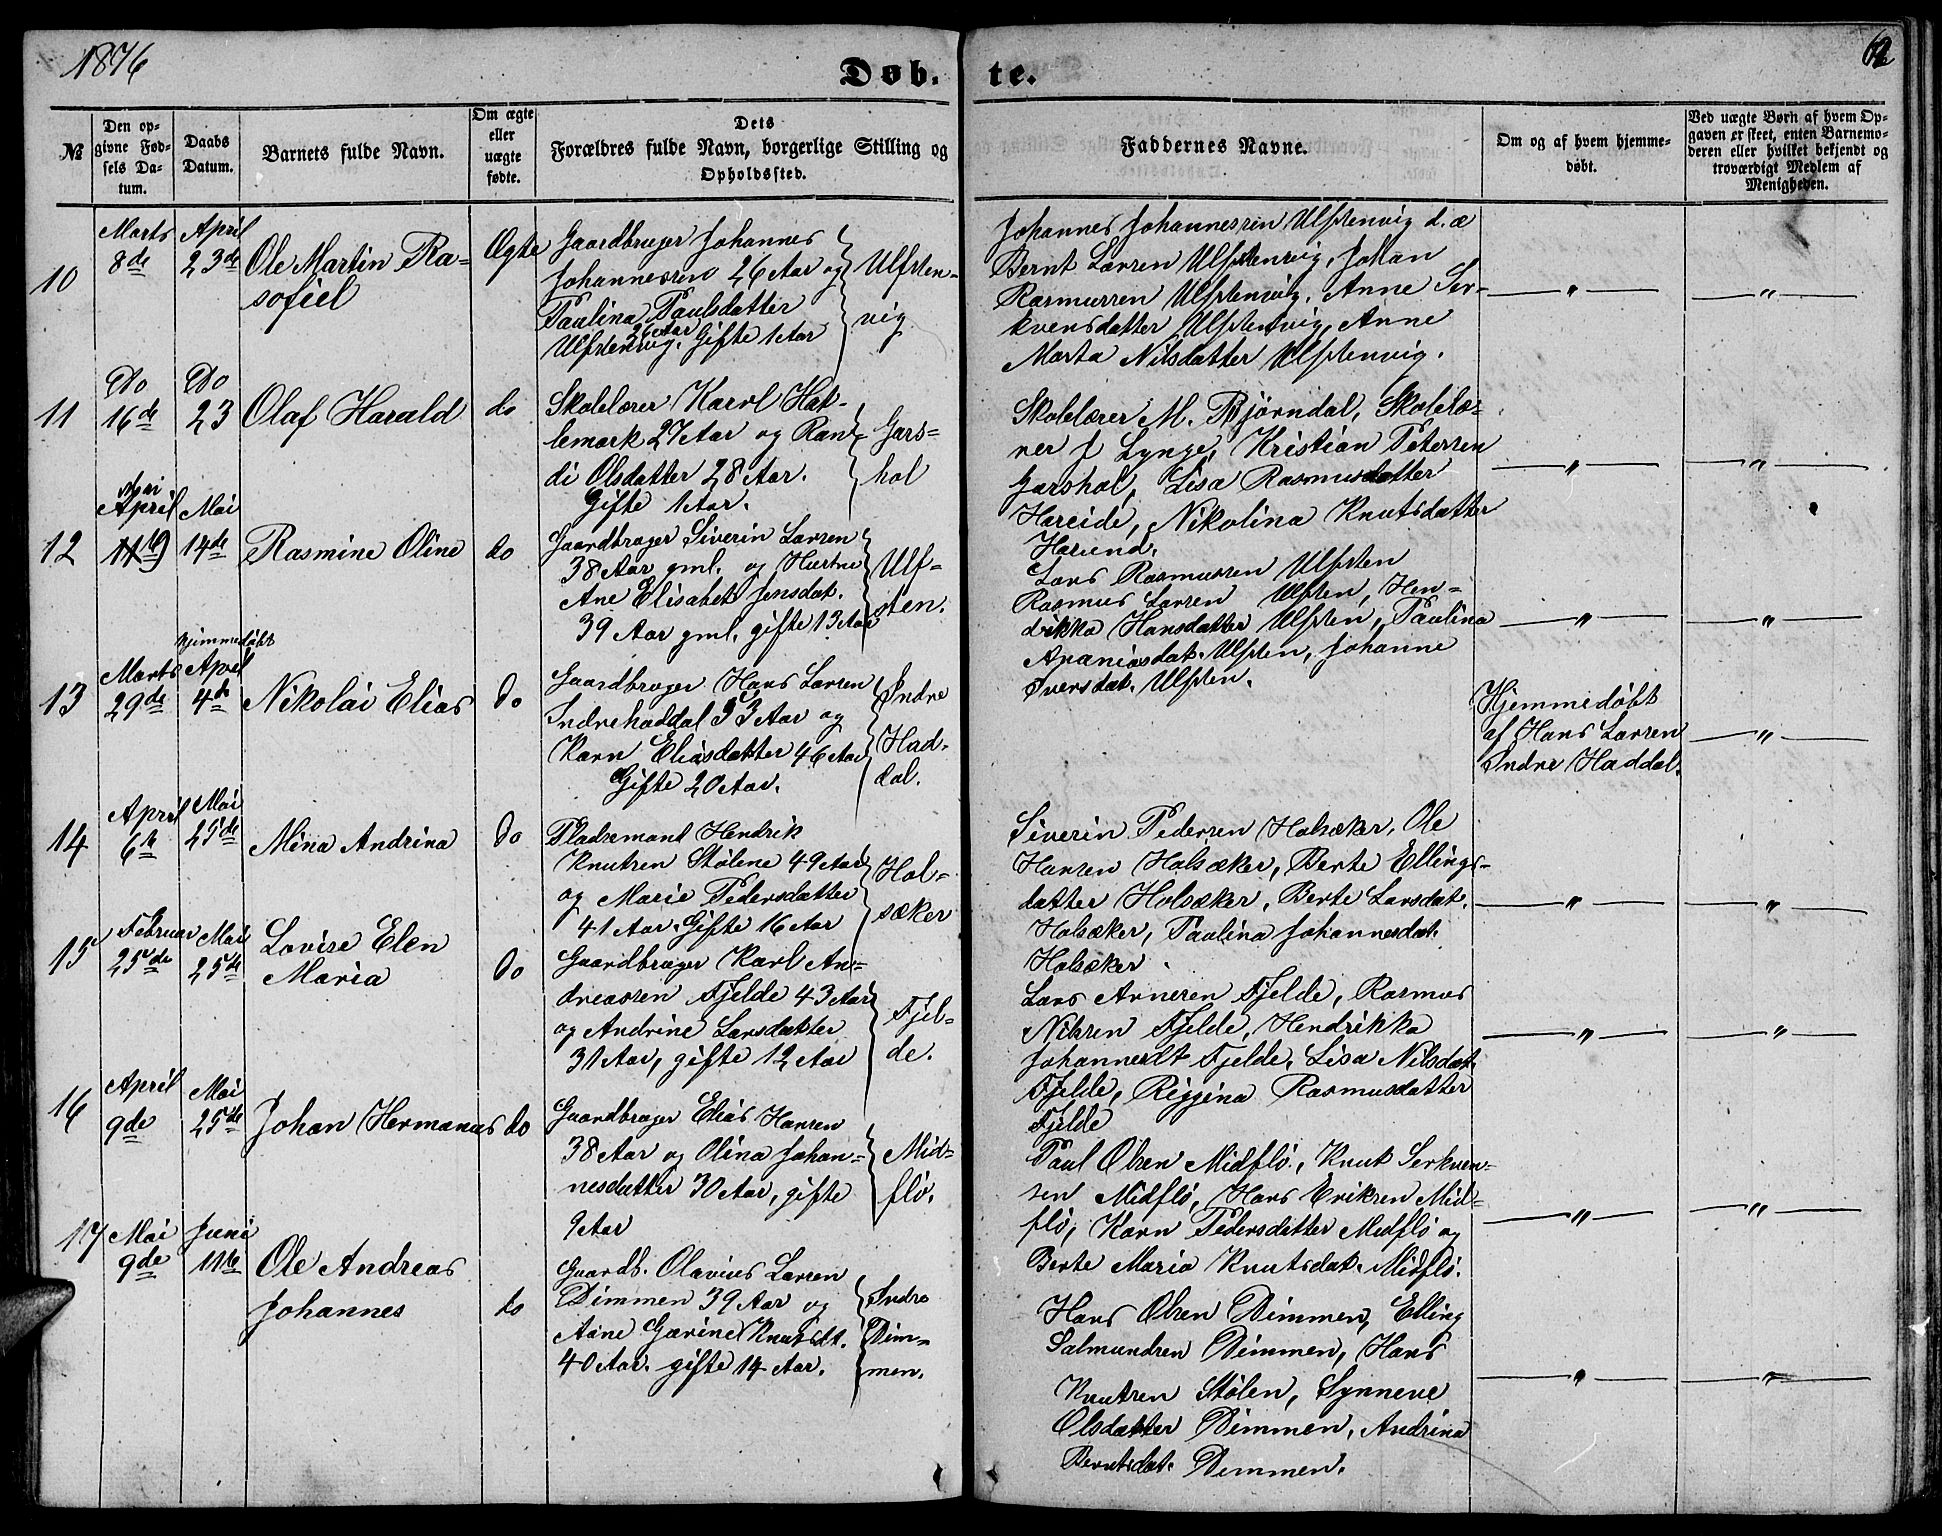 1876
62
Døb. te.
№
Den opgivne Fødsels Datum.
Daabs Datum.
Barnets fulde Navn.
Om ægte eller uægte fødte.
Dets Forældres fulde Navn, borgerlige Stilling og Opholdssted.
Faddernes Navne.
Om og af hvem hjemmedøbt.
Ved uægte Børn af hvem Opgaven er skeet, enten Barnemoderen eller hvilket bekjendt og troværdigt Medlem af Menigheden.
10
Marts 8de
April 23de
Ole Martin Ra-
sofiel
Ægte
Gaardbruger Johannes
Johannessen 26 Aar og
Paulina Paulsdatter
26 Aar
Ulfstenvig. Gifte 1 Aar
Ulfsten-
vig
Johannes Johannessen Ulfstenvig d. æ
Bernt Larsen Ulfstenvig, Johan
Rasmussen Ulfstenvig, Anne Ser-
kvensdatter Ulfstenvig, Anne
Marta Nilsdatter Ulfstenvig.
— " —
— " —
11
Do 16de
Do 23
Olaf Harald
do
Skolelærer Karol Hat-
lemark 27 Aar og Ran-
di Olsdatter 28 Aar.
Gifte 1 Aar.
Gars-
hol
Skolelærer M. Bjørndal, Skolelæ-
rer J Lynge, Kristian Petersen
Garshol, Lisa Rasmusdatter
Hareide, Nikolina Knutsdatter
Harund.
— " —
— " —
12
April
Mai 14de
Rasmine Oline
do
Gaardbruger Siverin Larsen
38 Aar gml. og Hustru
Ane Elisabet Jensdat.
39 Aar gml. gifte 13 Aar
Ulf-
sten.
Lars Rasmussen Ulfsten
Rasmus Larsen Ulfsten, Hen-
drikka Hansdatter Ulfsten, Paulina
Ananiasdat. Ulfsten, Johanne
Iversdat. Ulfsten.
— " —
— " —
13
Marts 29de
hjemmedøbt
April 4de
Nikolai Elias
Do
Gaardbruger Hans Larsen
Indrehaddal 53 Aar og
Karn Eliasdatter 46 Aar
Gifte 20 Aar.
Indre
Had-
dal.
Hjemmedøbt
af Hans Larsen
Indre Haddal.
— " —
14
April 6te
Mai 25de
Mina Andrina
Do
Pladsemand Hendrik
Knutsen Stølene 49 Aar
og Marie Pedersdatter
41 Aar. Gifte 16 Aar
Hol-
sæker
Siverin Pedersen Holsæker, Ole
Hansen Holsæker, Berte Ellings-
datter Holsæker, Berte Larsdat.
Holsæker, Paulina Johannesdat.
Holsæker.
— " —
— " —
15
Februar 25de
Mai 25de
Lovise Elen
Maria
Do
Gaardbruger Karl An-
dreassen Fjelde 43 Aar
og Andrine Larsdatter
31 Aar, gifte 12 Aar
Fjel-
de.
Lars Arnesen Fjelde, Rasmus
Nilsen Fjelde, Hendrikka
Johannesdt Fjelde, Lisa Nilsdat.
Fjelde, Reggina Rasmusdatter
Fjelde
— " —
— " —
16
April 9de
Mai 25de
Johan Hermanus
do
Gaardbruger Elias Hansen
38 Aar og Olina Johan-
nesdatter 30 Aar, gifte
9 Aar
Mid-
flø.
Paul Olsen Midflø, Knut Serkven-
sen Midflø, Hans Eriksen Mid-
flø, Karn Pedersdatter Midflø og
Berte Maria Knutsdat. Midflø.
— " —
— " —
17
Mai 9de
Juni 11te
Ole Andreas
Johannes
do
Gaardb. Olavius Larsen
Dimmen 39 Aar og
Ane Gurine Knutsdt.
40 Aar. gifte 14 Aar.
Indre
Dim-
men.
Hans Olsen Dimmen, Elling
Salmundsen Dimmen, Hans
Knutsen Stølen, Synneve
Olsdatter Dimmen, Andrina
Berntsdat. Dimmen.
— " —
— " —